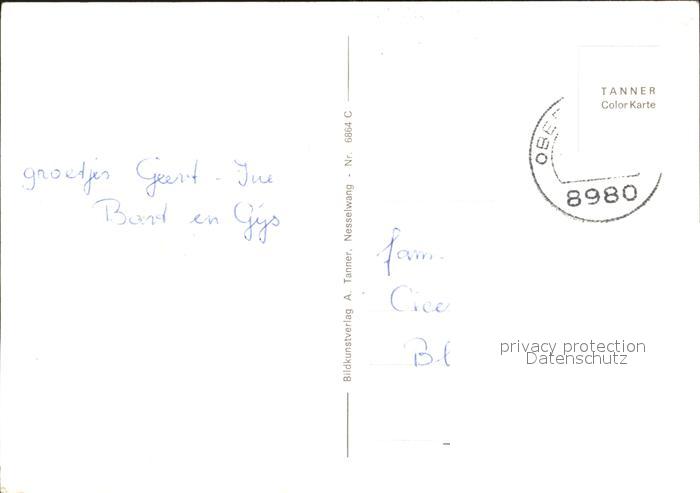 groetjes Geert - Ine
Bart en Gijs
Bildkunstverlag A. Tanner, Nesselwang - Nr. 6864 C
TANNER
Color Karte
OBE
8980
fam.
Bl
privacy protection
Datenschutz